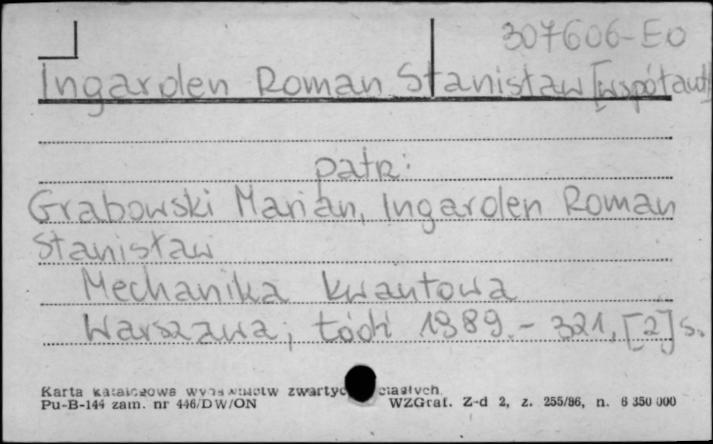 307606-EO
Ingarden Roman Stanisław [współaut]
patrz:
Grabowski Marian, Ingarden Roman
Stanisław
Mechanika kwantowa
Warszawa; Łódź 1989. - 321, [2] s.
Karta katalogowa wydawnictw zwartych ciągłych.
Pu-B-144 zam. nr 446/DW/ON WZGraf. Z-d 2, z. 255/86, n. 6 350 000